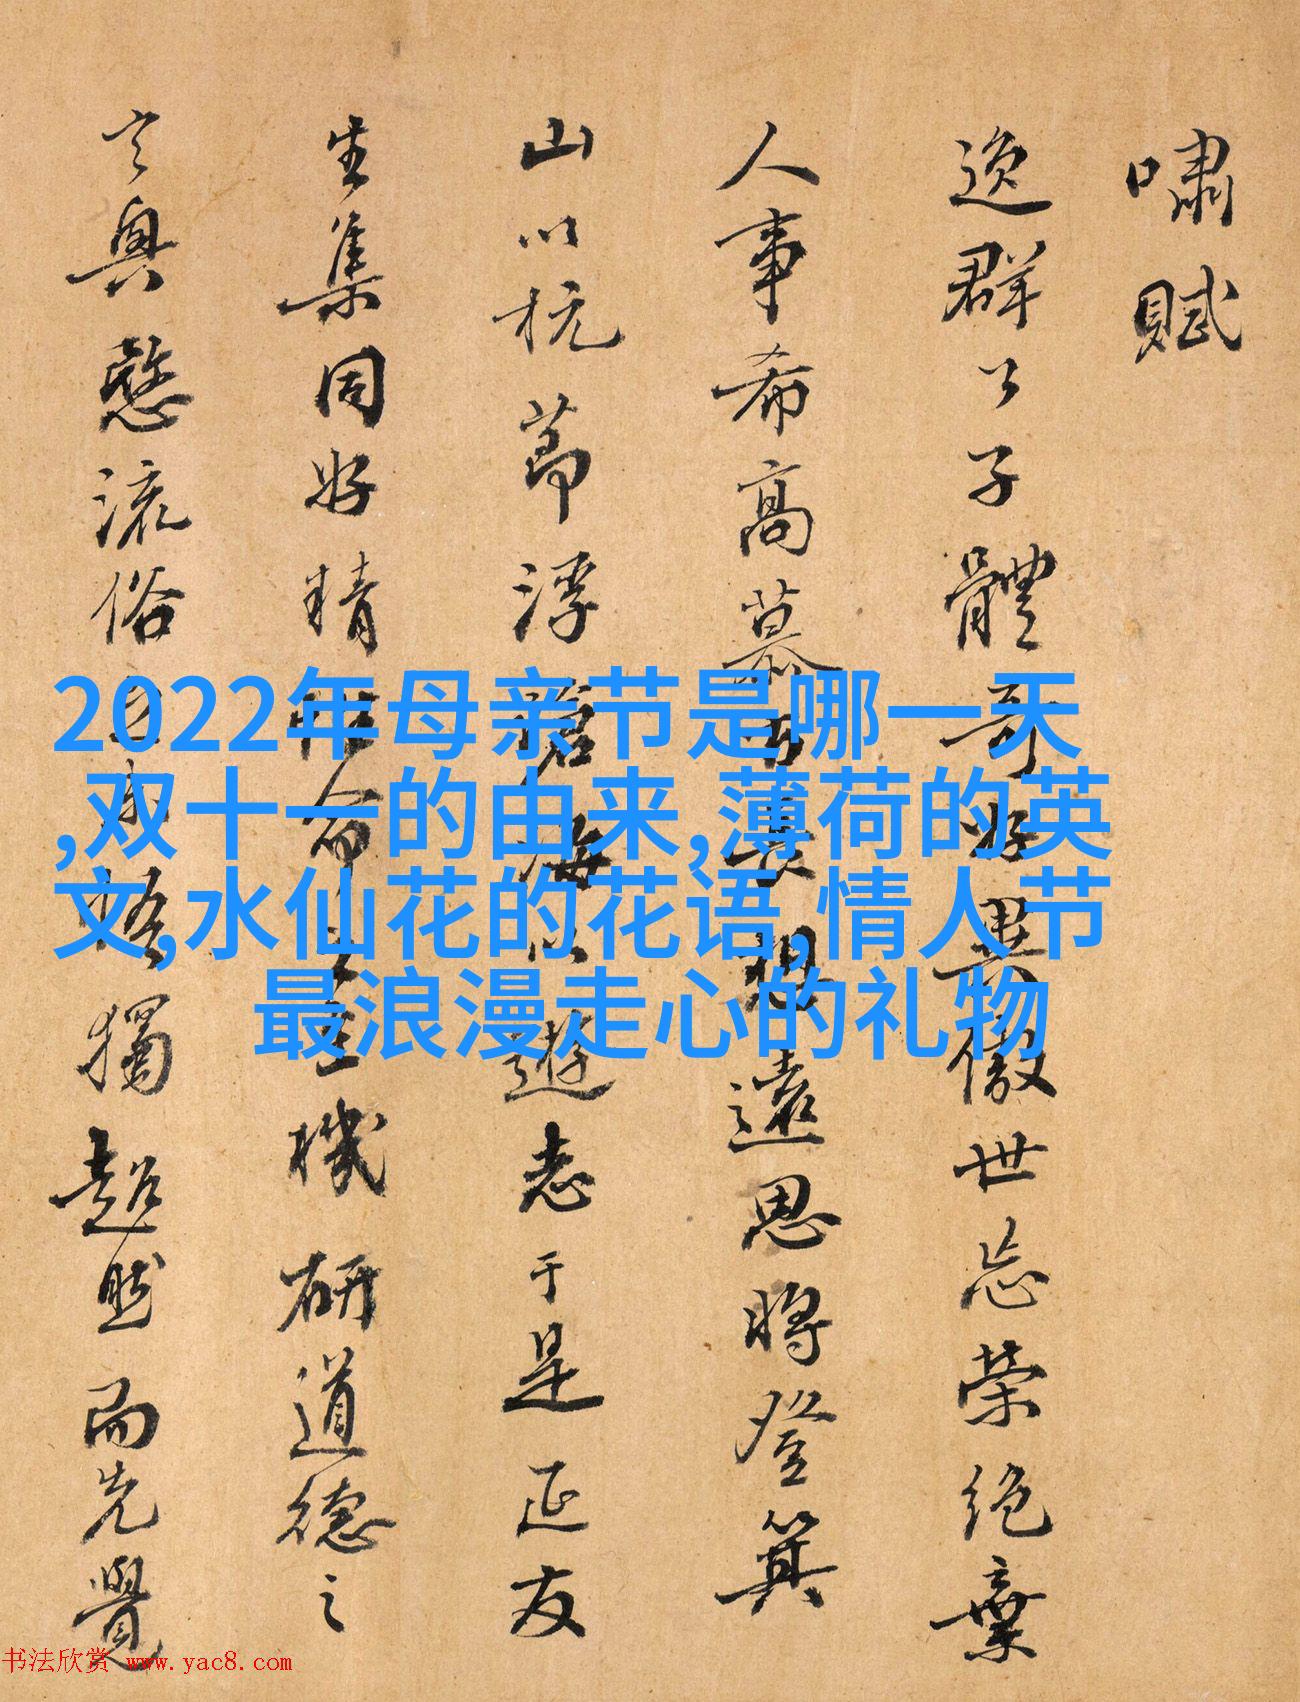 嘯賦
逸群公子體奇好異傲世忘榮絕棄
人事希高慕古長想遠思將登箕
山以抗節浮滄海以遊志于是延友
生集同好精性命之至機研道德之
玄奧愍流俗之未悟獨超然而先覺
2022年母亲节是哪一天
,双十一的由来,薄荷的英
文,水仙花的花语,情人节
最浪漫走心的礼物
书法欣赏 www.yac8.com